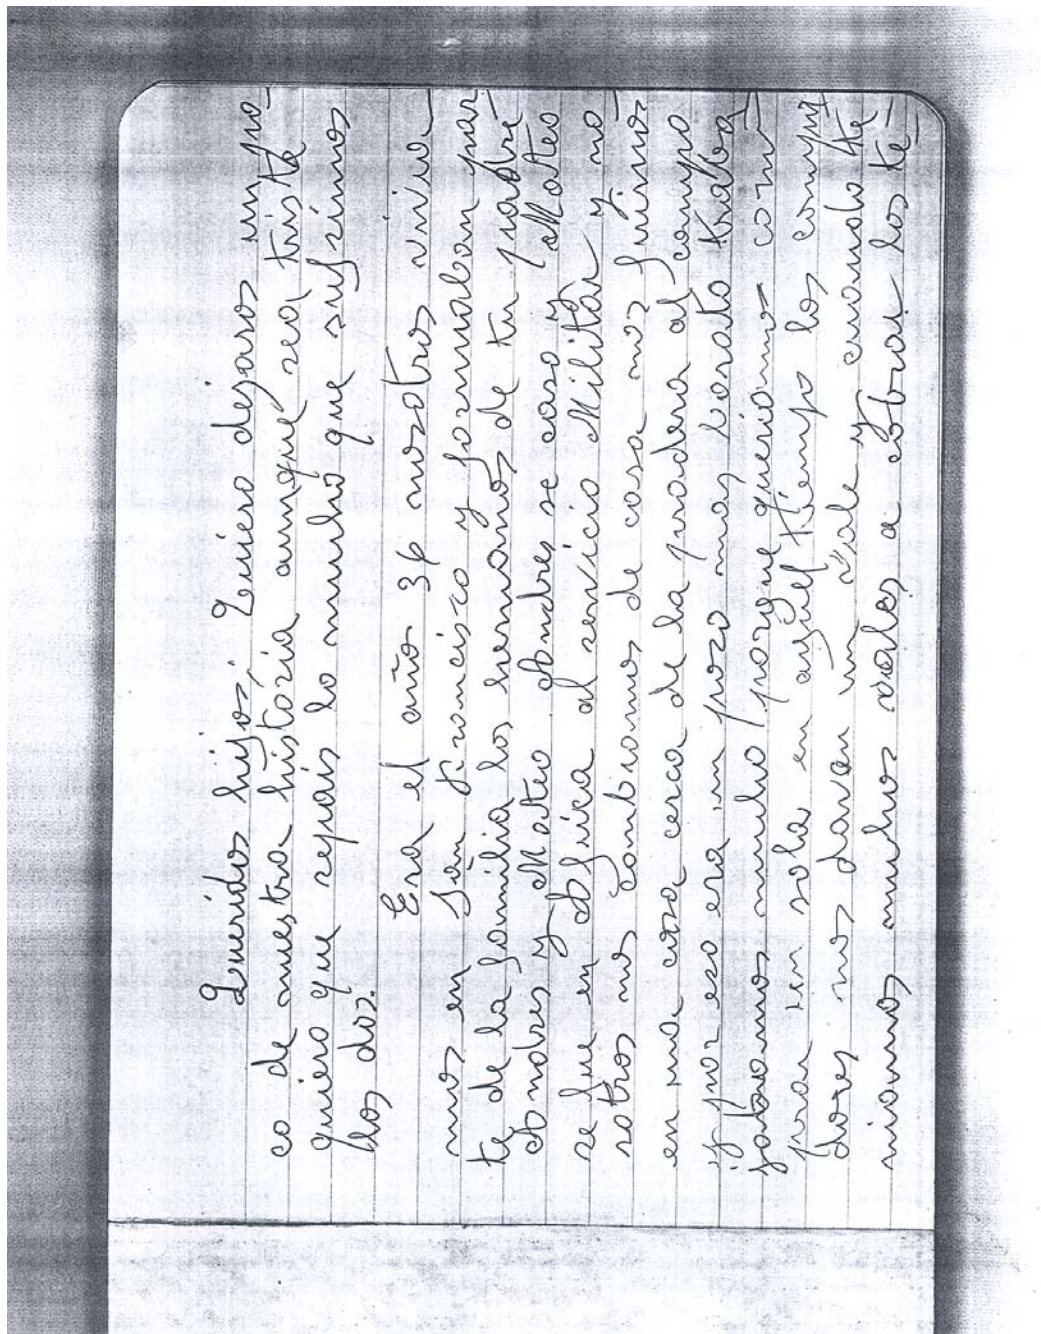 Queridos hijos: Quiero dejaros un po-
co de nuestra história aunque sea trista
quiero que sepais lo mucho que sufrimos
los dos.
Era el año 36 nosotros vivia-
mos en San Francisco y formaban par
te de la familia los hermanos de tu padre
Andres y Mateo Andres se caso y Mateo
se fue en Africa al cervicio Militar y no
sotros nos cambiamos de casa nos fuimos
en una casa cerca de la carretera al campo
y por eso era un pozo nos costado traba
jabamos mucho porque queriamos com
prar en sola en aquell tiempo los compra
dores nos davan un vale y cuando te
niamos muchos vales a cobrar los te-